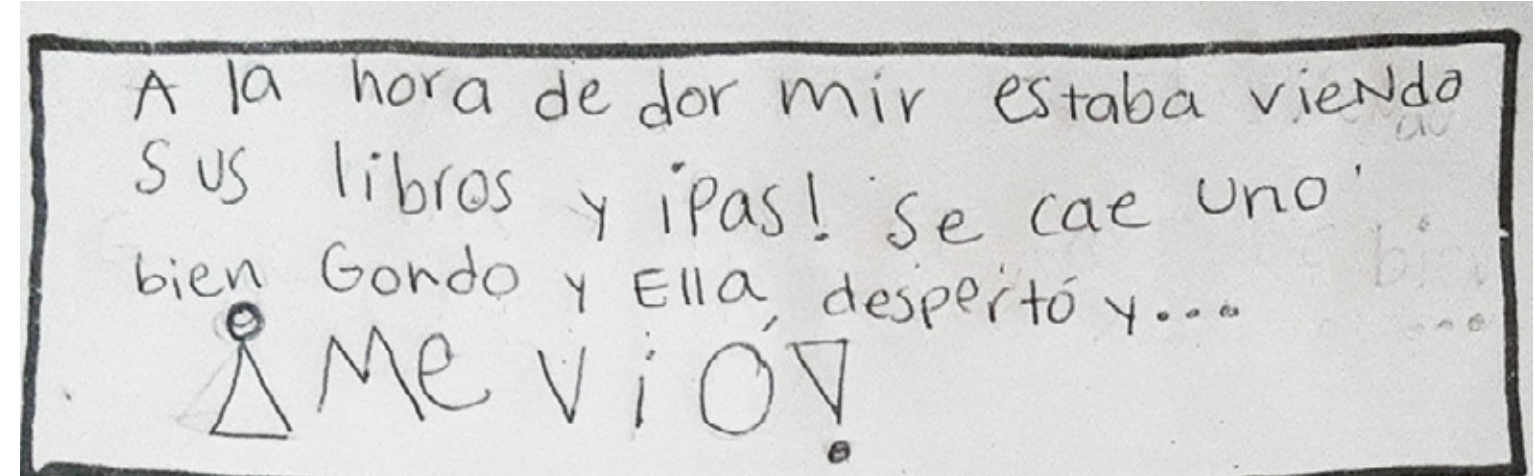 A la hora de dor mir estaba vieNdo
Sus libros y ¡Pas! Se cae uno
bien Gordo y Ella despertó y...
¡Me vió!